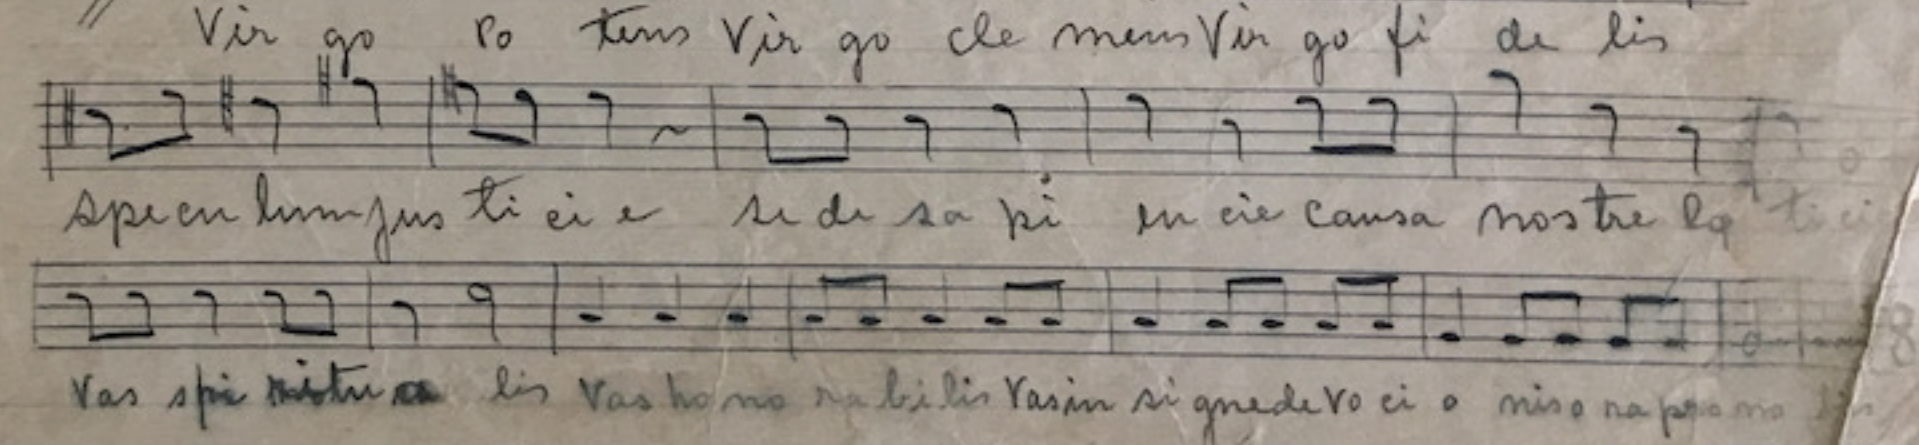 Vir go Po tens Vir go cle mens Vir go fi de lis
specu lum jus ti ci e se de sa pi en cie causa nostre la ti ci
Vas spi ritu a lis Vas ho no ra bi lis Vas in si gne de vo ci o nis o ra pro no bis